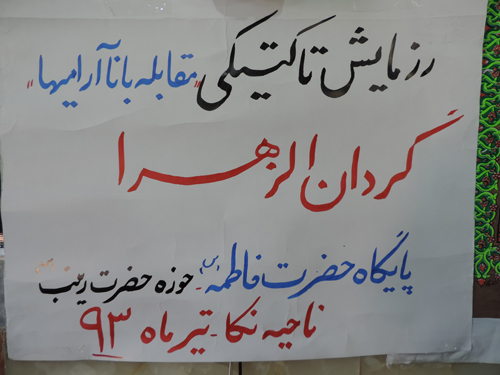 رزمایش تاکتیکی "مقابله با ناآرامیها"
گردان الزهرا
پایگاه حضرت فاطمه (س) - حوزه حضرت زینب
ناحیه نکا - تیر ماه ۹۳